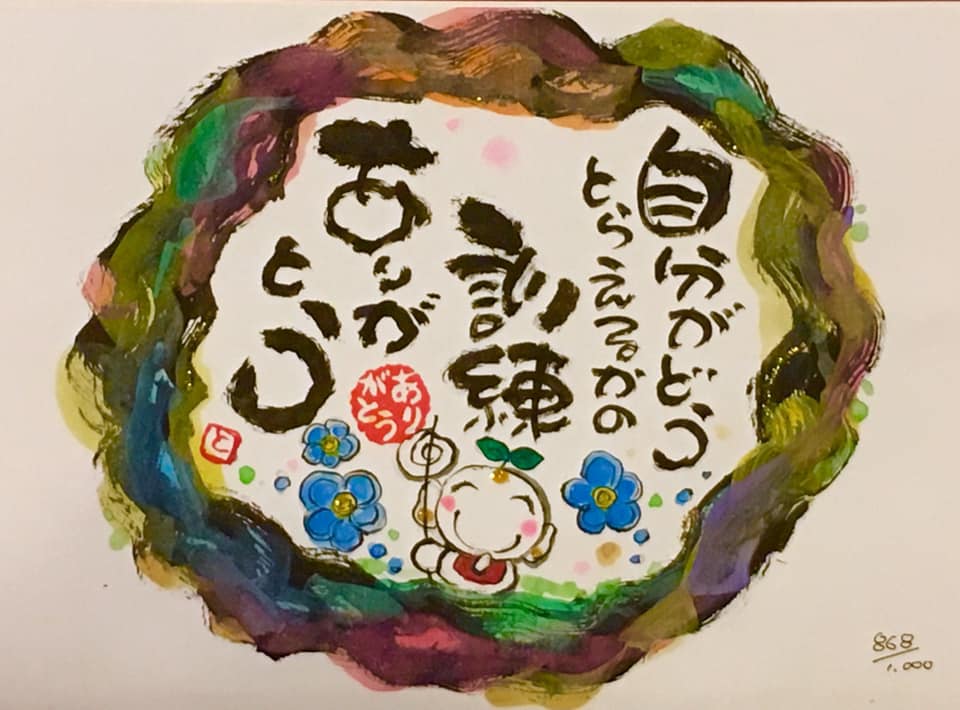 自分がどう
とらえるかの
訓練
ありが
とう
あり
がとう
と
868
1.000